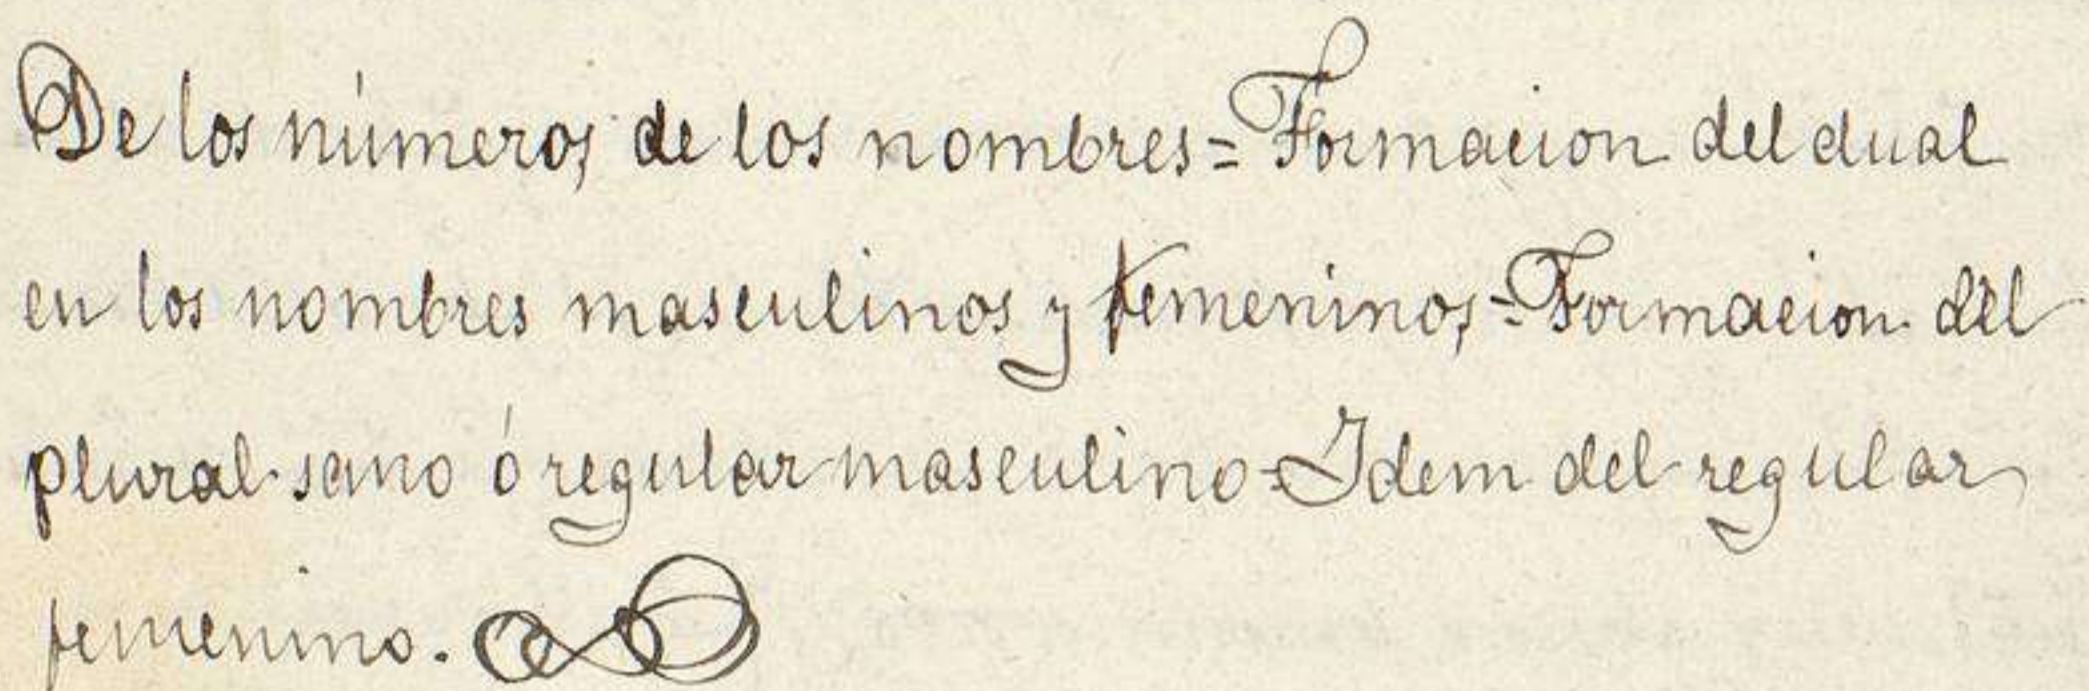 De los números de los nombres = Formacion del dual
en los nombres masculinos y femeninos = Formacion del
plural sano ó regular masculino = Idem del regular
femenino.